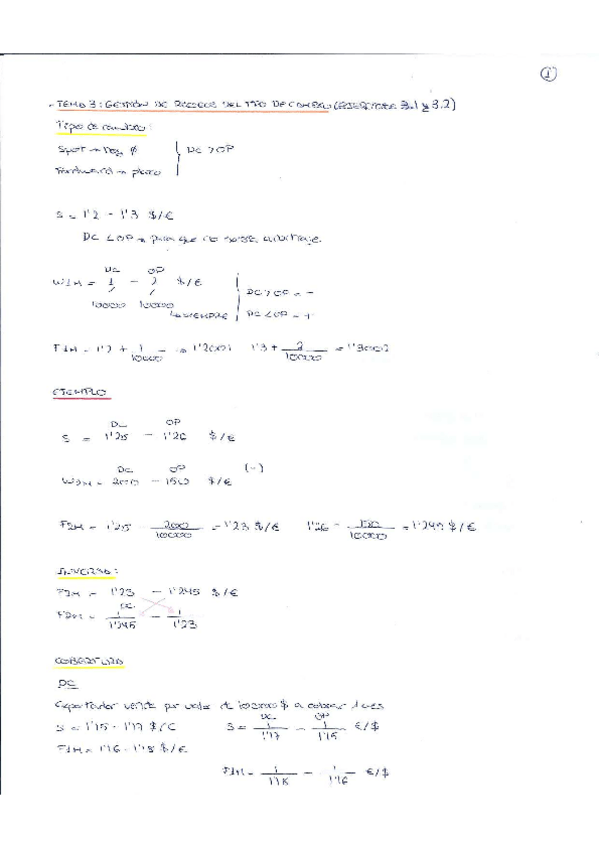 1
- TEMA 3: GESTIÓN DE RIESGO DEL TIPO DE CAMBIO (EJERCICIOS 3.1 y 3.2)
Tipo de cambio:
Spot → hoy DC > OP
Forward → plazo
S = 1'2 - 1'3 $/€
DC < OP → para que no arbitraje.
DC OP
1 - 2 $/€ DC > OP = -
10000 10000 SIEMPRE DC < OP = +
F1M = 1'2 + 1/10000 = 1'2001 1'3 + 2/10000 = 1'3002
EJEMPLO
DC OP
S = 1'25 - 1'26 $/€
DC OP (-)
200 - 150 $/€
F2M = 1'25 - 200/10000 = 1'23 $/€ 1'26 - 150/10000 = 1'245 $/€
INVERSO:
F2M = 1'23 - 1'245 $/€
DC
F2M = 1/1'245 - 1/1'23
COBERTURA
DC
Exportador vende por valor de $ a cobrar 1 mes
DC OP
S = 1'15 - 1'17 $/€ S = 1/1'17 - 1/1'15 €/$
F1M = 1'16 - 1'18 $/€
F1M = 1/1'18 - 1/1'16 €/$